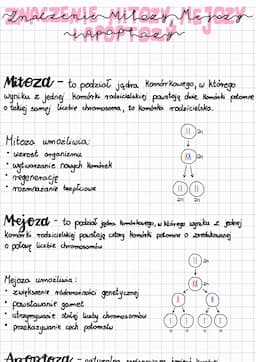 Znaczenie Mitozy, Mejozy
i Apoptozy
Mitoza - to podział jądra komórkowego, w którego
wyniku z jednej komórki rodzicielskiej powstają dwie komórki potomne
o takiej samej liczbie chromosomów, co komórka rodzicielska.
Mitoza umożliwia:
• wzrost organizmu
• wytwarzanie nowych komórek
• regenerację
• rozmnażanie bezpłciowe
2n
2n
2n 2n
Mejoza - to podział jądra komórkowego, w którego wyniku z jednej
komórki rodzicielskiej powstają cztery komórki potomne o zredukowanej
o połowę liczbie chromosomów
Mejoza umożliwia:
• zwiększenie różnorodności genetycznej
• powstawanie gamet
• utrzymywanie stałej liczby chromosomów
• przekazywanie cech potomstwu
2n
2n
n n n n
Apoptoza - naturalna